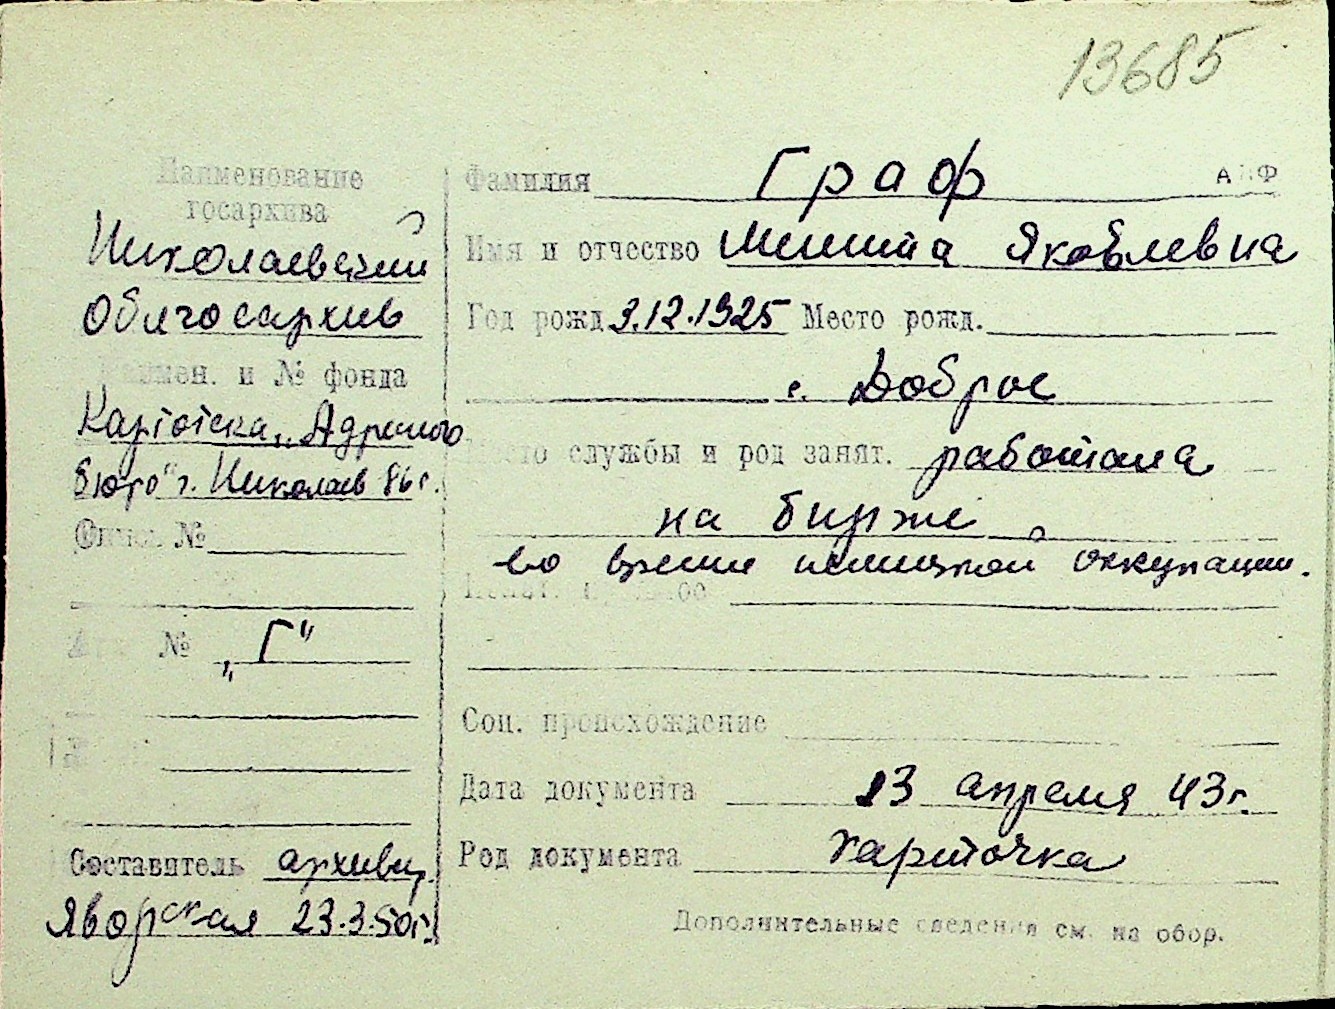 13685
Наименование
госархива
Николаевский
Облгосархив
Наимен. и № фонда
Картотека „Адресного
бюро" г. Николаев 86 г.
Опись №
№ „Г"
Составитель архивир.
Яворская 23.3.50г.
Фамилия Граф
Имя и отчество Минна Яковлевна
Год рожд 9.12.1925 Место рожд.
с. Доброе
Место службы и род занят. работала
на бирже
во время немецкой оккупации.
Соц. происхождение
Дата документа 13 апреля 43г.
Род документа карточка
Дополнительные сведения см. на обор.